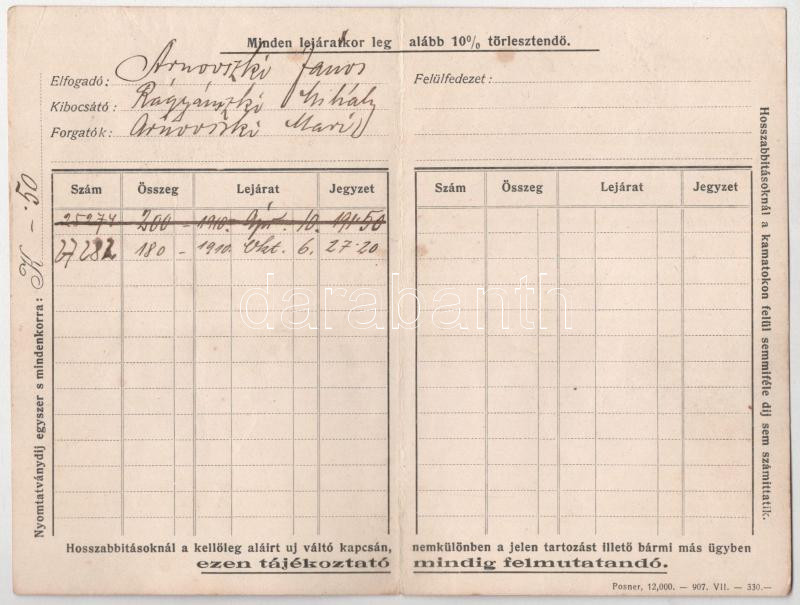 Minden lejáratkor leg alább 10% törlesztendő.
Elfogadó: Arnovszki János
Kibocsátó: Ragyánszki Mihály
Forgatók: Arnovszki Mari
Felülfedezet:
Szám Összeg Lejárat Jegyzet
25274 200 – 1910. Ápr. 10. 191·50
27282 180 – 1910. Okt. 6. 27·20
Szám Összeg Lejárat Jegyzet
Nyomtatványdij egyszer s mindenkorra: K –.50
Hosszabbitásoknál a kamatokon felül semmiféle dij sem számittatik.
Hosszabbitásoknál a kellöleg aláirt uj váltó kapcsán, nemkülönben a jelen tartozást illető bármi más ügyben
ezen tájékoztató mindig felmutatandó.
Posner, 12,000. — 907. VII. — 330.—
darabanth